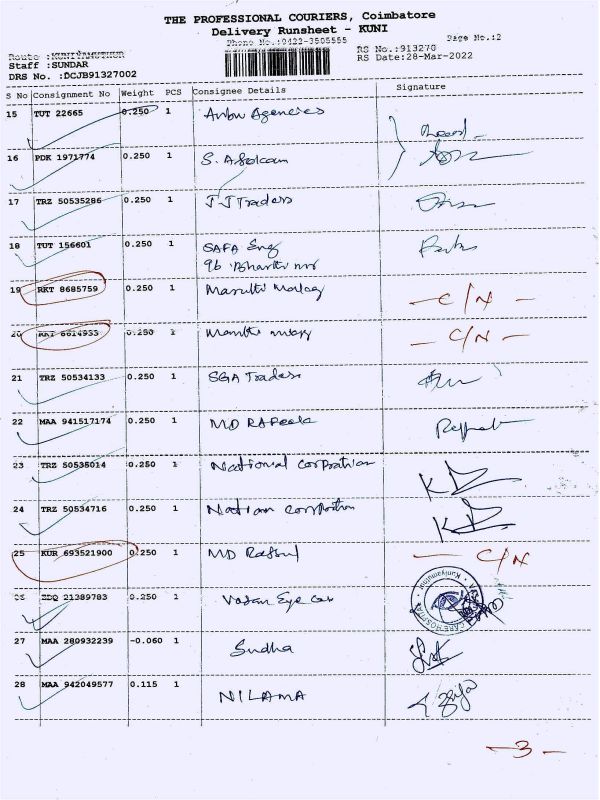 THE PROFESSIONAL COURIERS, Coimbatore
Delivery Runsheet - KUNI
Phone No.:0422-3505555
Page No.:2
Route :KUNIYAMUTHUR
RS No.:913270
Staff :SUNDAR
RS Date:28-Mar-2022
DRS No. :DCJB91327002
S No Consignment No Weight PCS Consignee Details Signature
15 TUT 22665 0.250 1 Anbu Agencies
16 PDK 1971774 0.250 1 S.
17 TRZ 50535286 0.250 1 JJ Traders
18 TUT 156601 0.250 1 SAFA Eng
96
19 RKT 8685759 0.250 1 Maruthi - C/N -
20 6614933 0.250 1 - C/N -
21 TRZ 50534133 0.250 1 SGA Traders
22 MAA 941517174 0.250 1 MD
23 TRZ 50535014 0.250 1 National corporation
24 TRZ 50534716 0.250 1 Nation corporation
25 KUR 693521900 0.250 1 MD - C/N
26 21389783 0.250 1 Vasan Eye
27 MAA 280932239 -0.060 1 Sudha
28 MAA 942049577 0.115 1 NILAMA
-3-